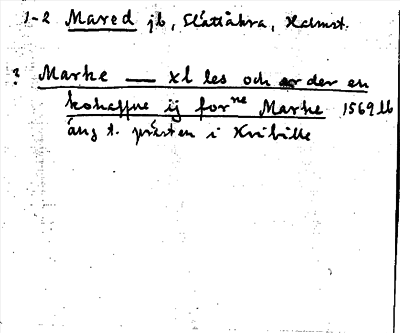 1-2 Mared jb, Slättåkra, Halmst.
? Marke — xl les och är der en
kohappne ij forne Marke 1569 lb
äng t. prästen i Kvibille